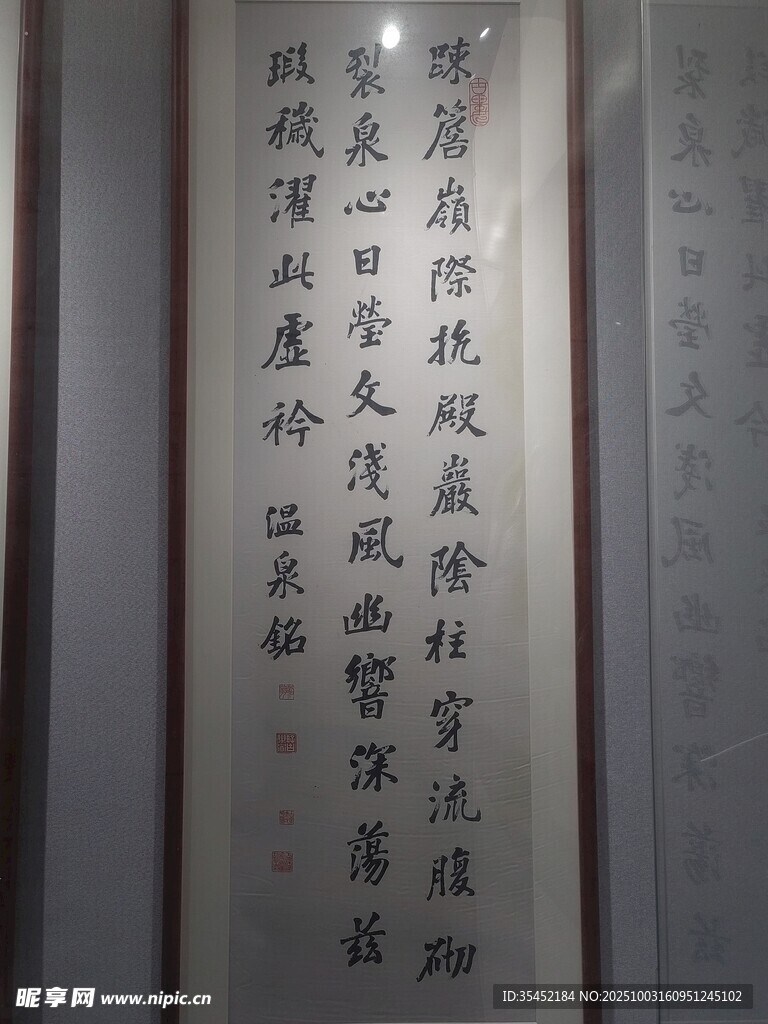 疎簷嶺際抗殿巖陰柱穿流腹砌
裂泉心日瑩文淺風幽響深蕩茲
瑕穢濯此虛衿
溫泉銘
昵享网 www.nipic.cn
ID:35452184 NO:20251003160951245102